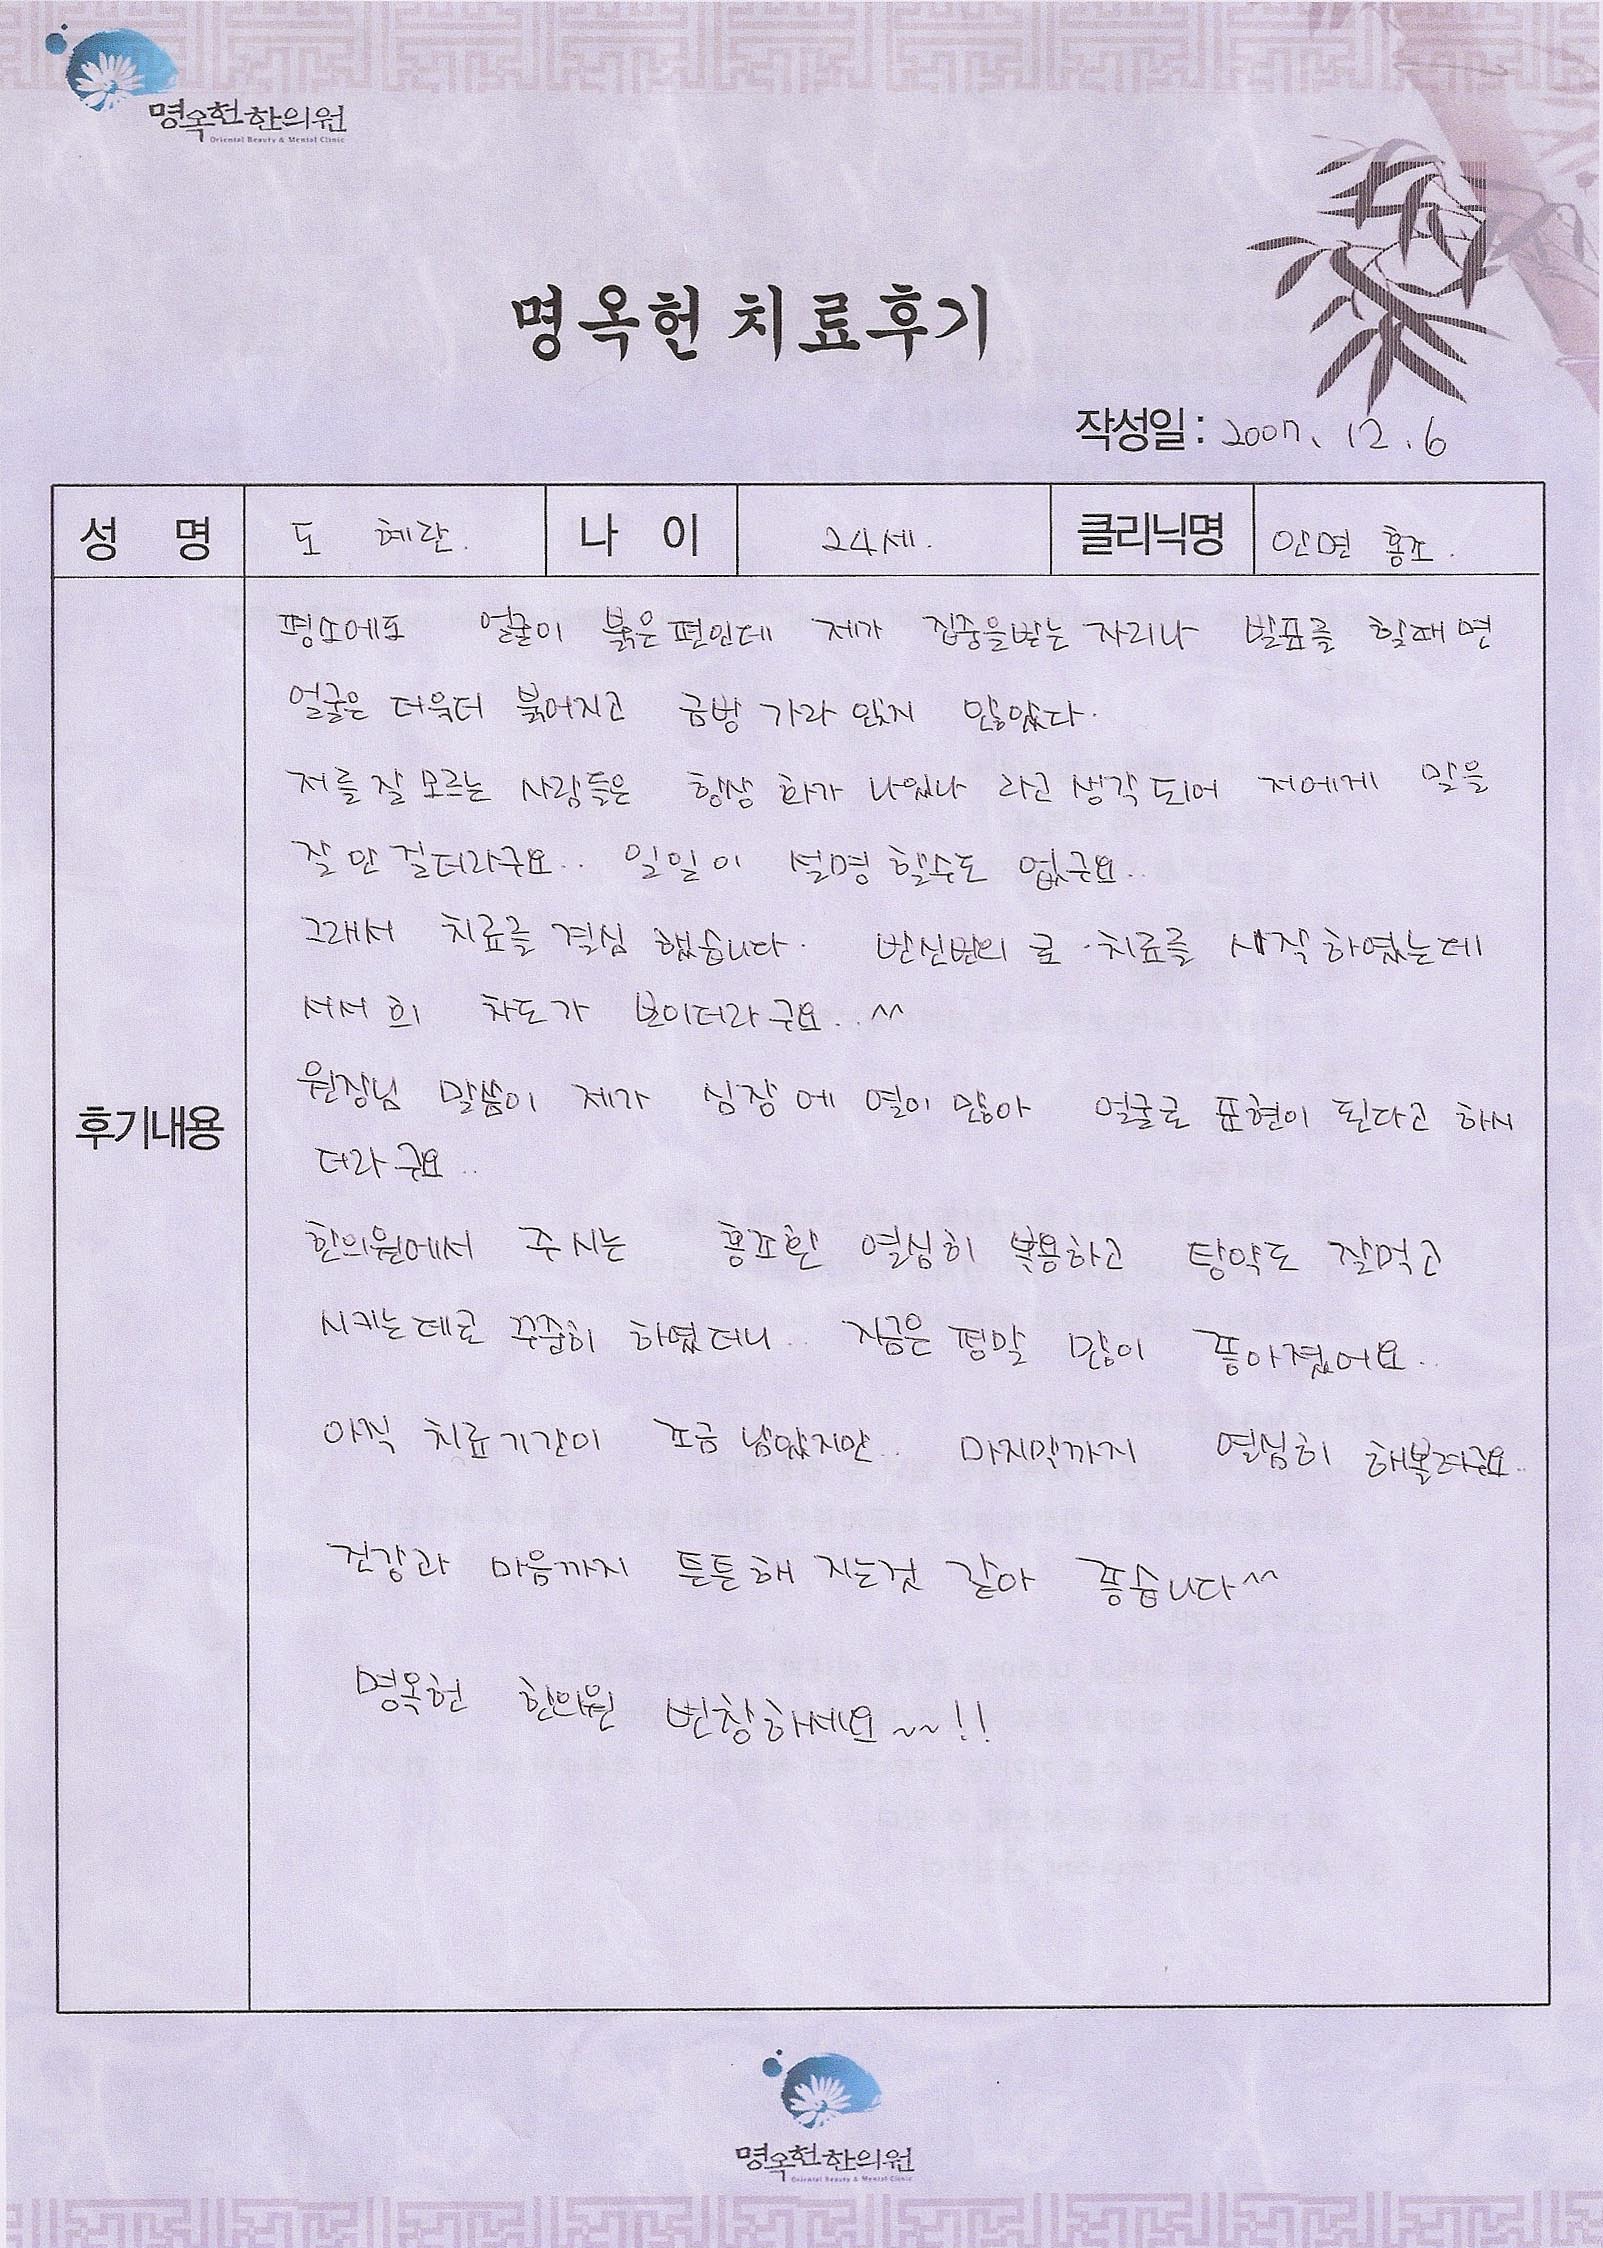 명옥헌한의원
Oriental Beauty & Mental Clinic
명옥헌 치료후기
작성일 : 2007. 12. 6
성 명 도 혜란. 나 이 24세. 클리닉명 안면 홍조.
평소에도 얼굴이 붉은 편인데 제가 집중을받는 자리나 발표를 할때면
얼굴은 더욱더 붉어지고 금방 가라 앉지 않았다.
저를 잘 모르는 사람들은 항상 화가 나있나 라고 생각 되어 저에게 말을
잘 안 걸더라구요.. 일일이 설명 할수도 없구요..
그래서 치료를 결심 했습니다. 반신반의 로 치료를 시작 하였는데
서서 희 차도가 보이더라 구요.. ^^
원장님 말씀이 제가 심장 에 열이 많아 얼굴로 표현이 된다고 하시
더라 구요..
후기내용
한의원에서 주시는 홍조환 열심히 복용하고 탕약도 잘먹고
시키는데로 꾸준히 하였더니.. 지금은 정말 많이 좋아졌어요..
아직 치료기간이 조금 남았지만.. 마지막까지 열심히 해볼려구요..
건강과 마음까지 튼튼해 지는것 같아 좋습니다^^
명옥헌 한의원 번창하세요~~!!
명옥헌한의원
Oriental Beauty & Mental Clinic